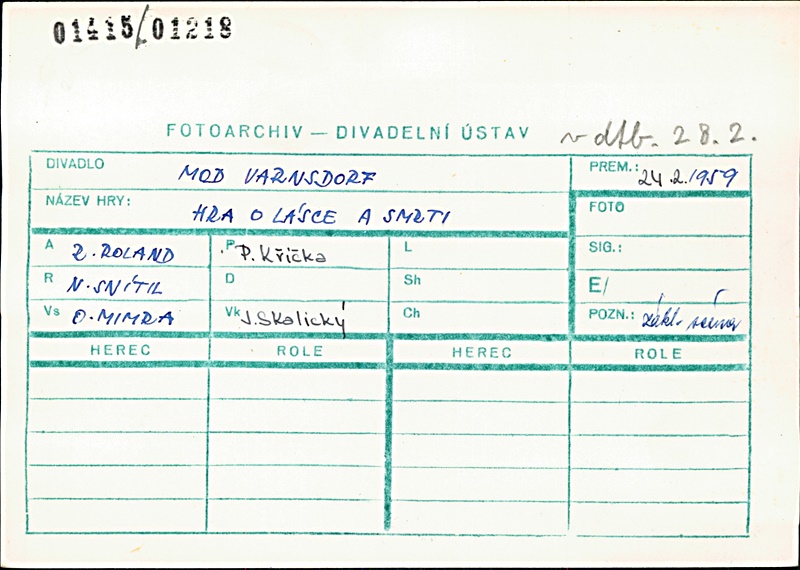 01415/01218
FOTOARCHIV — DIVADELNÍ ÚSTAV v dtb. 28.2.
DIVADLO MOD VARNSDORF PREM.: 24.2.1959
NÁZEV HRY: HRA O LÁSCE A SMRTI FOTO
A R. ROLAND P P. Křička L SIG.:
R N. SNÍTIL D Sh E/
Vs O. MIMRA Vk J. Skalický Ch POZN.: zákl. scéna
HEREC ROLE HEREC ROLE